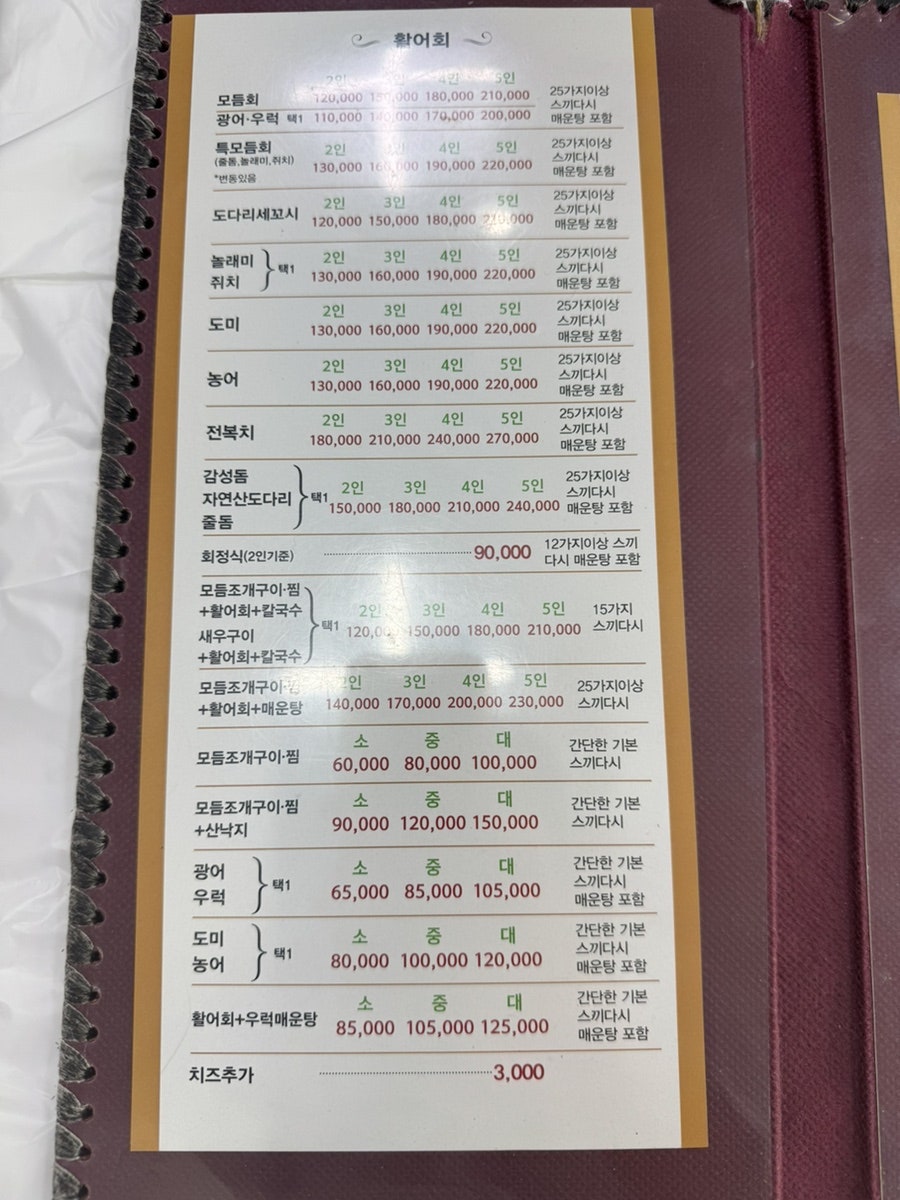 활어회
2인 3인 4인 5인
모듬회 120,000 150,000 180,000 210,000 25가지이상 스끼다시 매운탕 포함
광어·우럭 택1 110,000 140,000 170,000 200,000
특모듬회 2인 4인 5인 25가지이상
(줄돔,놀래미,쥐치) 130,000 160,000 190,000 220,000 스끼다시
*변동있음 매운탕 포함
2인 3인 4인 5인 25가지이상
도다리세꼬시 120,000 150,000 180,000 210,000 스끼다시
매운탕 포함
놀래미 2인 3인 4인 5인 25가지이상
택1 스끼다시
쥐치 130,000 160,000 190,000 220,000 매운탕 포함
2인 3인 4인 5인 25가지이상
도미 130,000 160,000 190,000 220,000 스끼다시
매운탕 포함
2인 3인 4인 5인 25가지이상
농어 130,000 160,000 190,000 220,000 스끼다시
매운탕 포함
2인 3인 4인 5인 25가지이상
전복치 180,000 210,000 240,000 270,000 스끼다시
매운탕 포함
감성돔 2인 3인 4인 5인 25가지이상
자연산도다리 택1 150,000 180,000 210,000 240,000 스끼다시
줄돔 매운탕 포함
회정식(2인기준) 90,000 12가지이상 스끼
다시 매운탕 포함
모듬조개구이·찜
+활어회+칼국수 2인 3인 4인 5인 15가지
새우구이 택1 120,000 150,000 180,000 210,000 스끼다시
+활어회+칼국수
모듬조개구이·찜 2인 3인 4인 5인 25가지이상
+활어회+매운탕 140,000 170,000 200,000 230,000 스끼다시
소 중 대 간단한 기본
모듬조개구이·찜 60,000 80,000 100,000 스끼다시
모듬조개구이·찜 소 중 대 간단한 기본
+산낙지 90,000 120,000 150,000 스끼다시
광어 소 중 대 간단한 기본
택1 스끼다시
우럭 65,000 85,000 105,000 매운탕 포함
도미 소 중 대 간단한 기본
택1 스끼다시
농어 80,000 100,000 120,000 매운탕 포함
소 중 대 간단한 기본
활어회+우럭매운탕 85,000 105,000 125,000 스끼다시
매운탕 포함
치즈추가 3,000